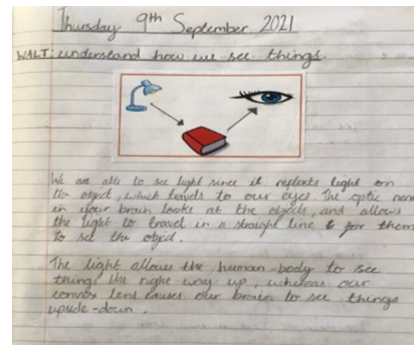 Thursday 9th September 2021
WALT: understand how we see things.
We are able to see light since it reflects light on
the object, which travels to our eyes. The optic nerve
in your brain looks at the objects, and allows
the light to travel in a straight line for them
to see the object.
The light allows the human-body to see
things the right way up, whereas our
convex lens causes our brain to see things
upside-down.